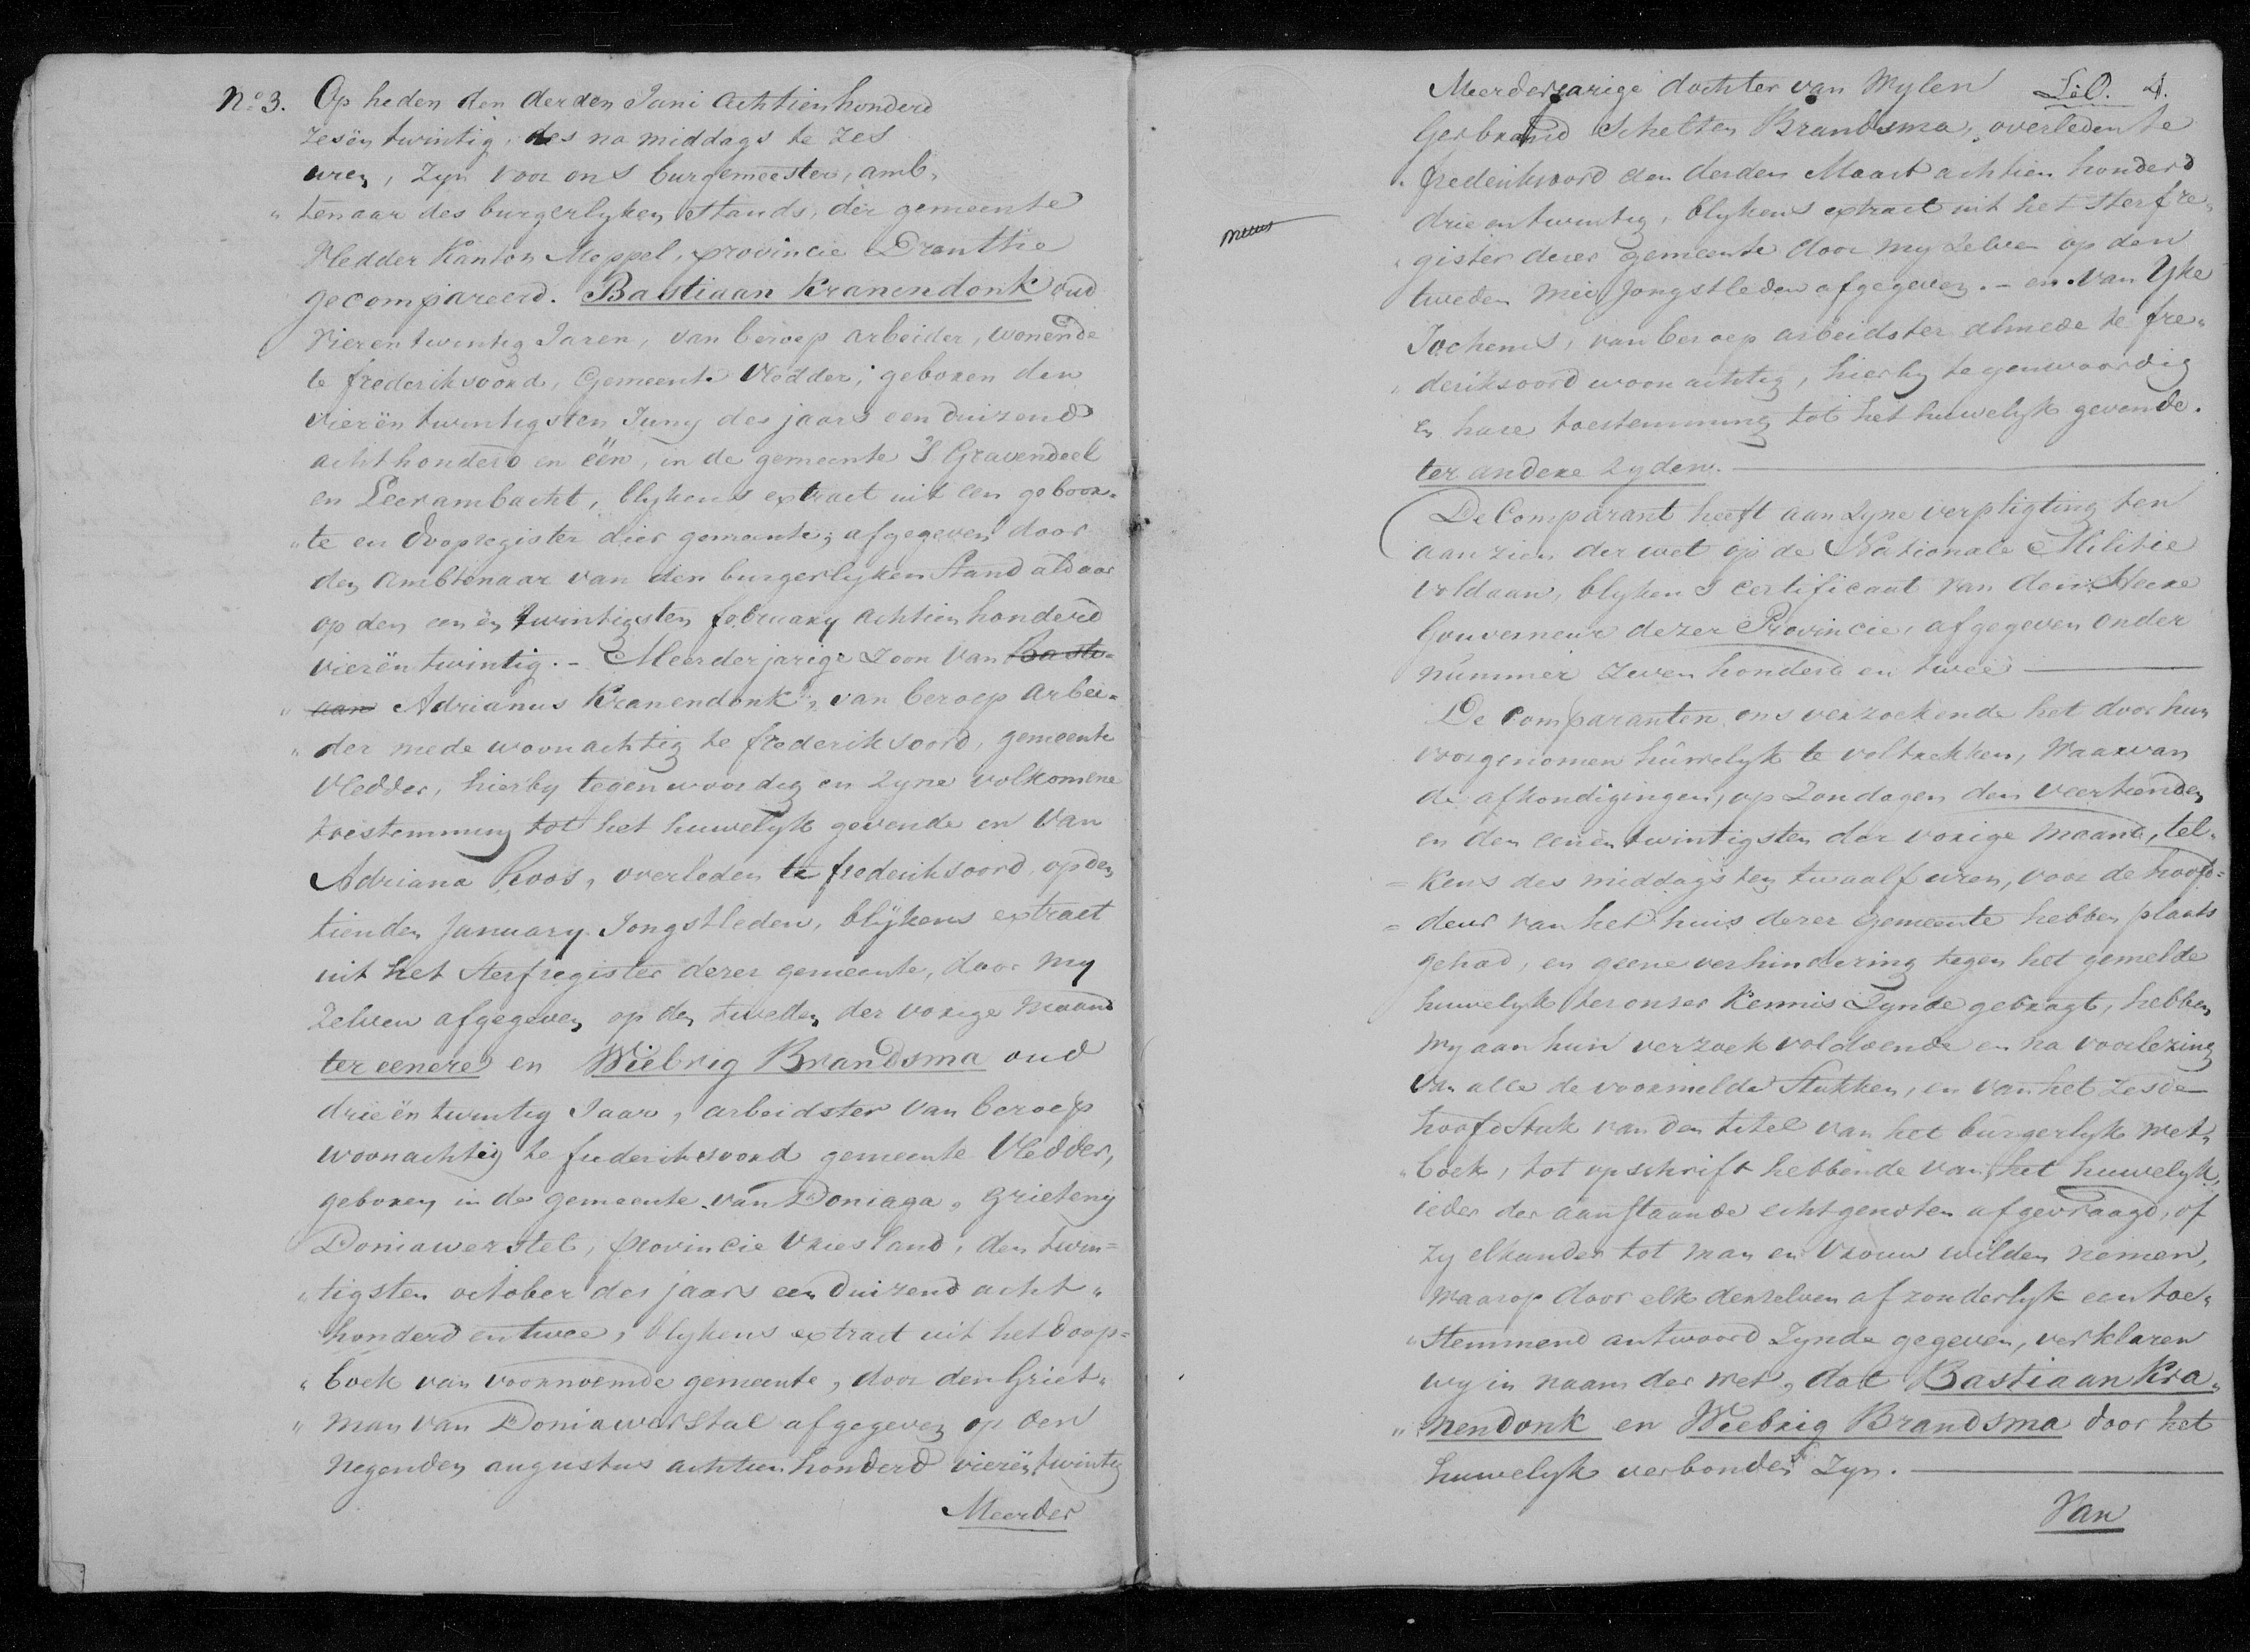 No 3. Op heden den derden Juni achtien honderd
zesën twintig, des na middags te zes
uren, zyn voor ons burgemeester, amb„
„tenaar des burgerlyken Stands, der gemeente
Vledder Kanton Meppel, provincie Drenthe
gecompareerd. Bastiaan Kranendonk oud
vierentwintig Jaren, van beroep arbeider, wonende
te frederiksoord, Gemeente Vledder, geboren den
vierëntwintigsten Juny des jaars een duizend
acht honderd en één, in de gemeente S Gravendeel
en Leerambacht, blykens extract uit een geboor„
„te en doopregister dier gemeente, afgegeven door
den ambtenaar van den burgerlyken Stand aldaar
op den eenën twintigsten february achtien honderd
vierën twintig. - Meerderjarige zoon van Basti„
„aan Adrianus Kranendonk, van beroep arbei„
„der mede woonachtig te frederiksoord, gemeente
Vledder, hierby tegenwoordig en zyne volkomene
toestemming tot het huwelyk gevende en van
Adriana Roos, overleden te frederiksoord, op den
tienden January Jongstleden, blykens extract
uit het Sterfregister dezer gemeente, door my
zelven afgegeven op den tweden der vorige maand
ter eenere en Wiebrig Brandsma oud
drieën twintig Jaar, arbeidster van beroep
woonachtig te frederiksoord gemeente Vledder,
geboren in de gemeente van Doniaga, Grieteny
Doniawerstel, provincie Vriesland, den twin=
„tigsten october des jaars een duizend acht„
honderd en twee, blykens extract uit het doop=
„boek van voornoemde gemeente, door den Griet„
„man van Doniawerstal afgegeven op den
negenden augustus achtien honderd vierën twintig
Meerder
Meerderjarige dochter van Wylen L:O. 4.
Gerbrand Schelten Brandsma, overleden te
frederiksoord den derden Maart achtien honderd
drie en twintig, blykens extract uit het Sterfre„
„gister dezer gemeente door my zelven op den
tweden mei Jongstleden afgegeven. - en van Yke
Jochems, van beroep arbeidster almede te fre„
„deriksoord woonachtig, hierby tegenwoordig
en hare toestemming tot het huwelyk gevende.
ter andere zyden.
De Comparant heeft aan zyne verpligting ten
aanzien der wet op de Nationale Militie
voldaan, blykens certificaat van den Heere
Gouverneur dezer Provincie, afgegeven onder
nummer zeven honderd en twee
De Comparanten ons verzoekende het door hun
voorgenomen huwelyk te voltrekken, waarvan
de afkondigingen, op Zondagen den veertienden
en den eenën twintigsten der vorige maand, tel„
=kens des middags ten twaalf uren, voor de hoofd=
=deur van het huis dezer Gemeente hebben plaats
gehad, en geene verhindering tegen het gemelde
huwelyk ter onser kennis zynde gebragt, hebben
wy aan hun verzoek voldoende en na voorlezing
van alle de voormelde Stukken, en van het zesde
hoofdstuk van den titel van het burgerlyk wet„
„boek, tot opschrift hebbende van het huwelyk,
ieder der aanstaande echtgenoten afgevraagd, of
zy elkander tot man en vrouw wilden nemen,
waarop door elk derzelven afzonderlyk een toe„
„stemmend antwoord zynde gegeven, verklaren
wy in naam der wet, dat Bastiaan Kra„
„nendonk en Wiebrig Brandsma door het
huwelyk verbonden zyn.
Van